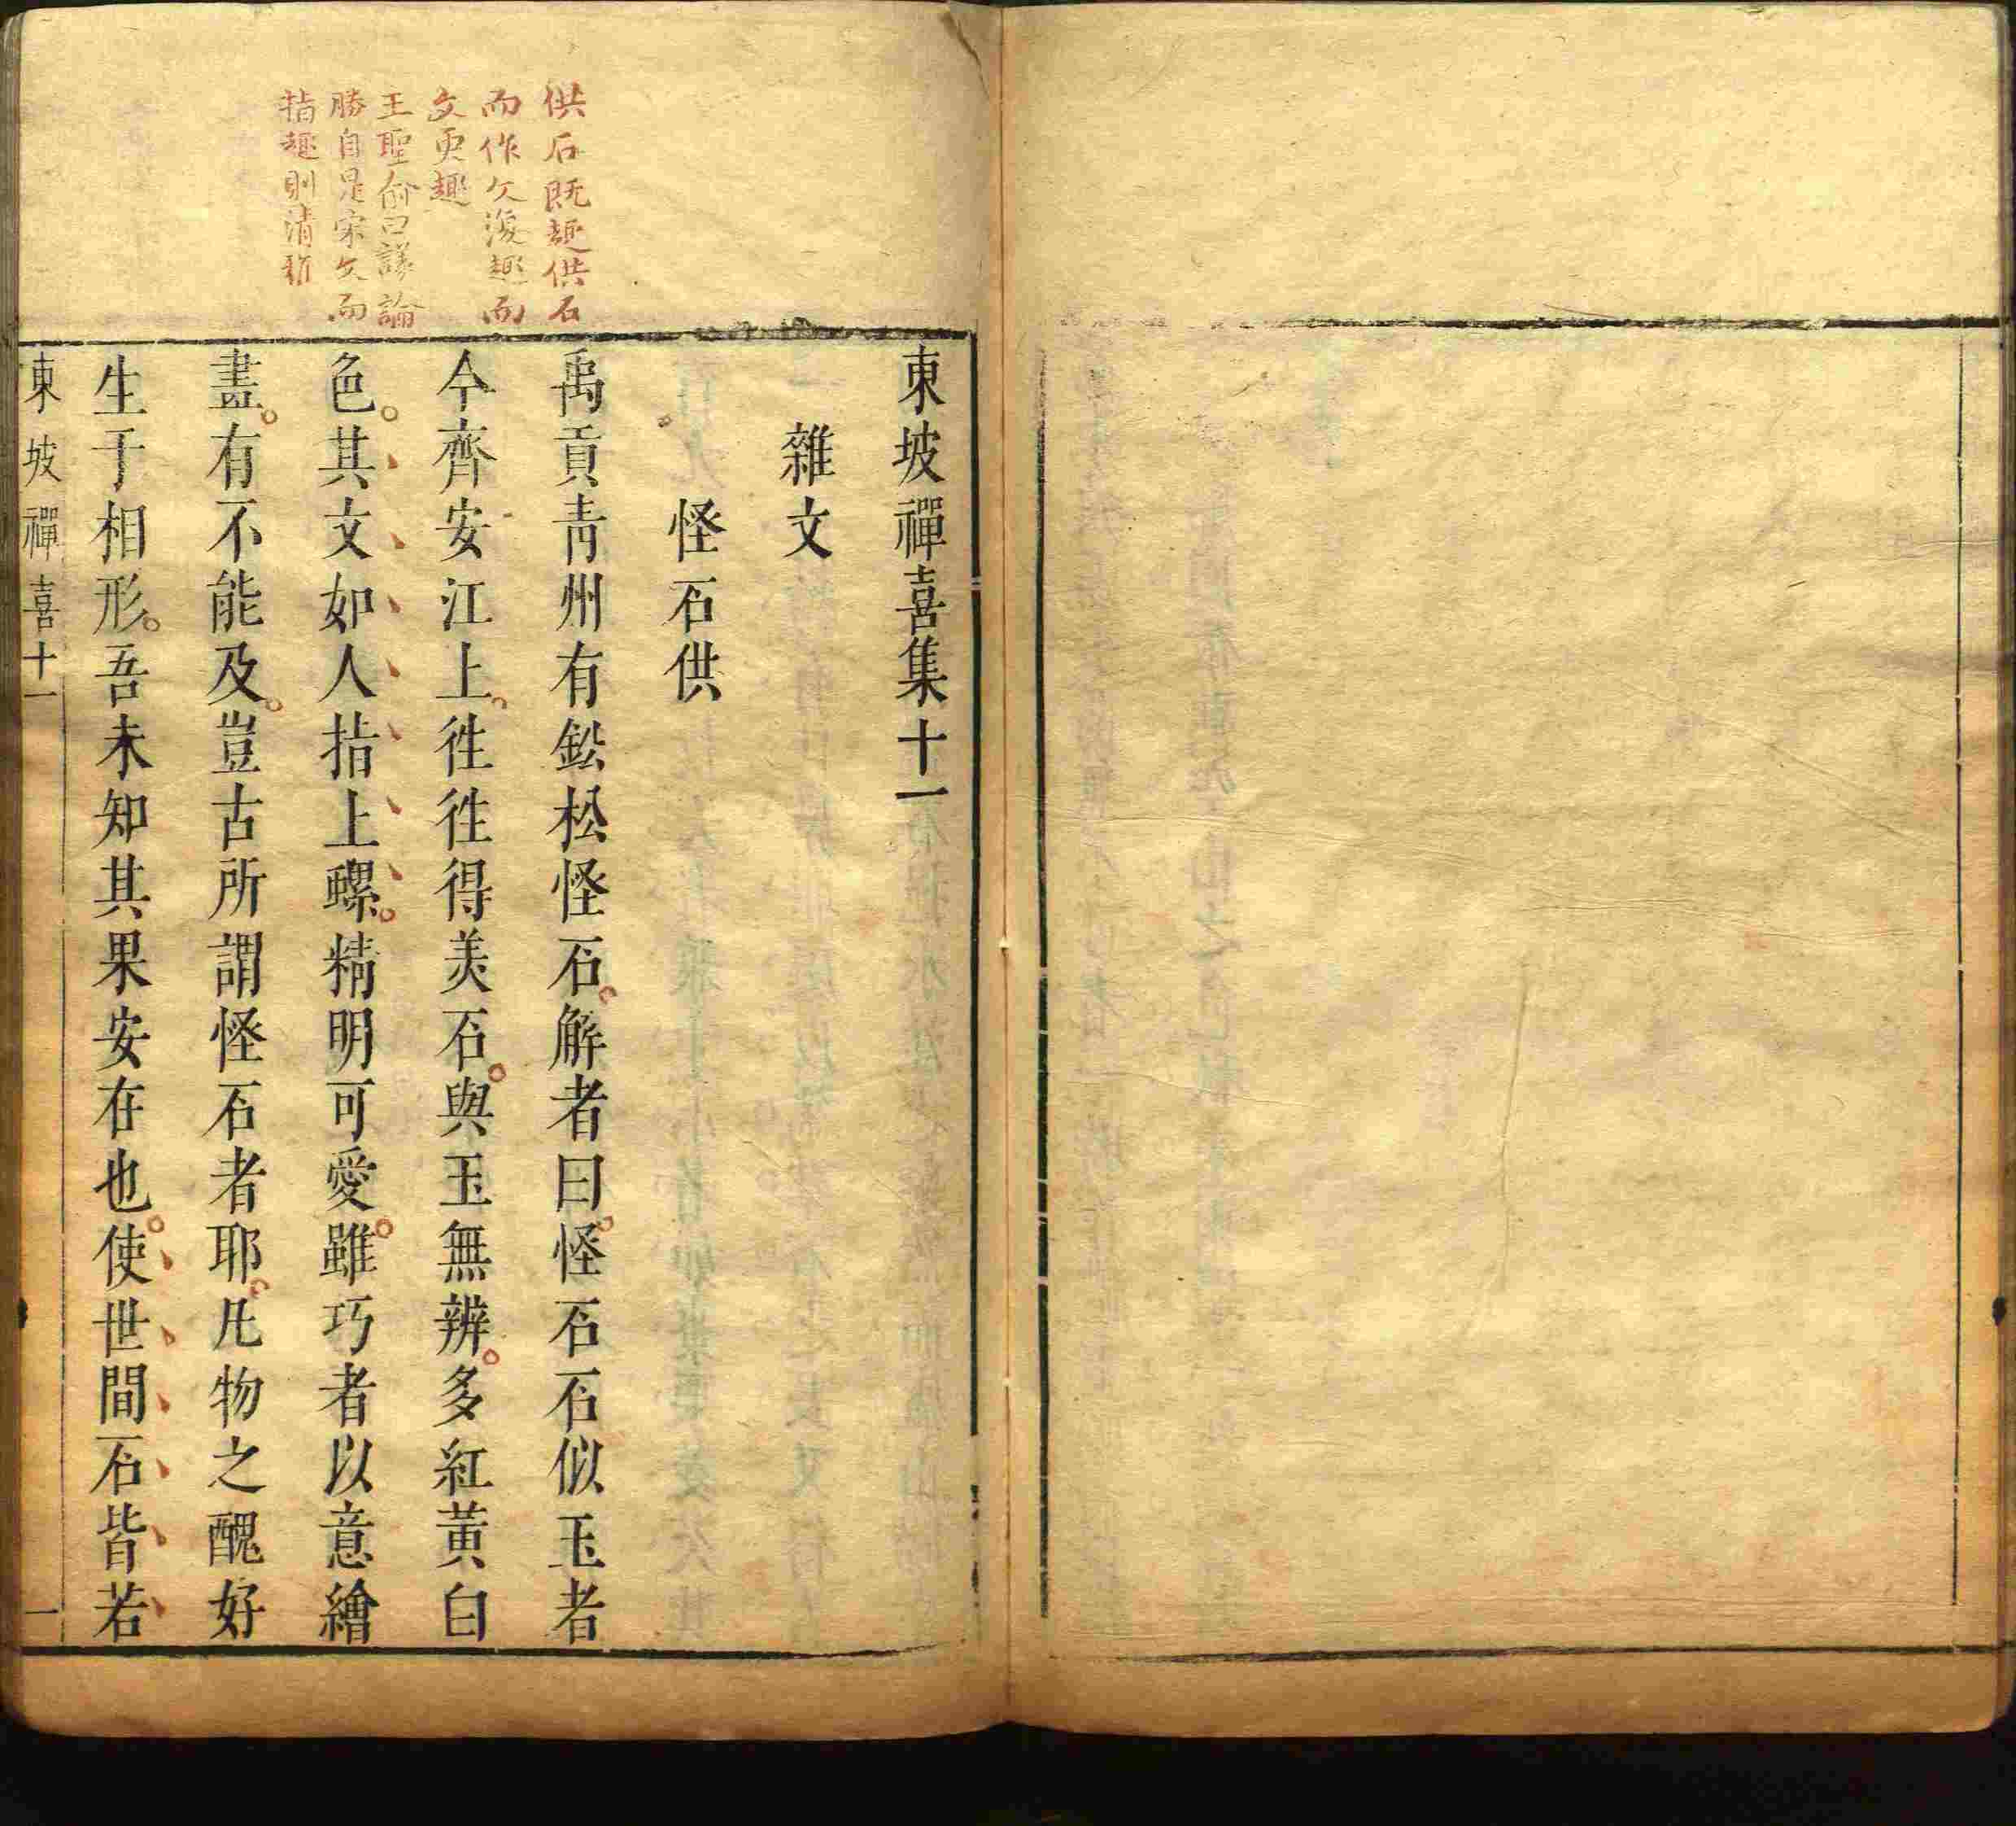 供石既趣供石
而作文復趣而
文更趣
王聖俞曰議論
勝自是宋文而
指趣則清新
東坡禪喜集十一
雜文
怪石供
禹貢青州有鈆松怪石解者曰怪石石似玉者
今齊安江上徃徃得美石與玉無辨多紅黃白
色其文如人指上螺精明可愛雖巧者以意繪
畫有不能及豈古所謂怪石者耶凡物之醜好
生于相形吾未知其果安在也使世間石皆若
東坡禪喜十一
一